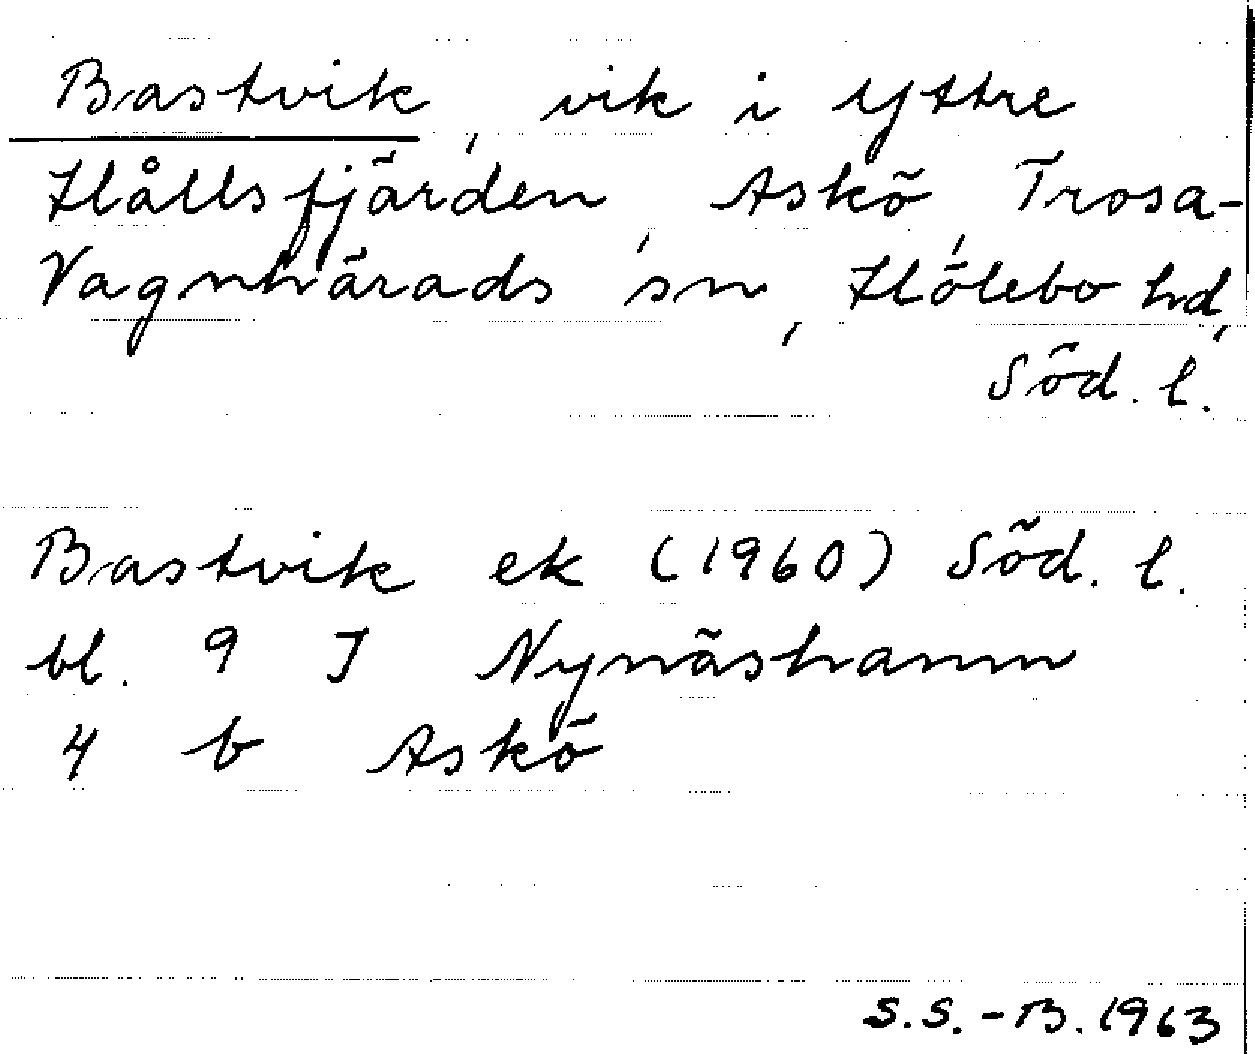 Bastvik, vik i Yttre
Hållsfjärden, Askö, Trosa-
Vagnhärads sn, Hölebo hd,
Söd. l.
Bastvik ek (1960) Söd. l.
bl. 9 I Nynäshamn
4 b Askö
S.S.-B. 1963